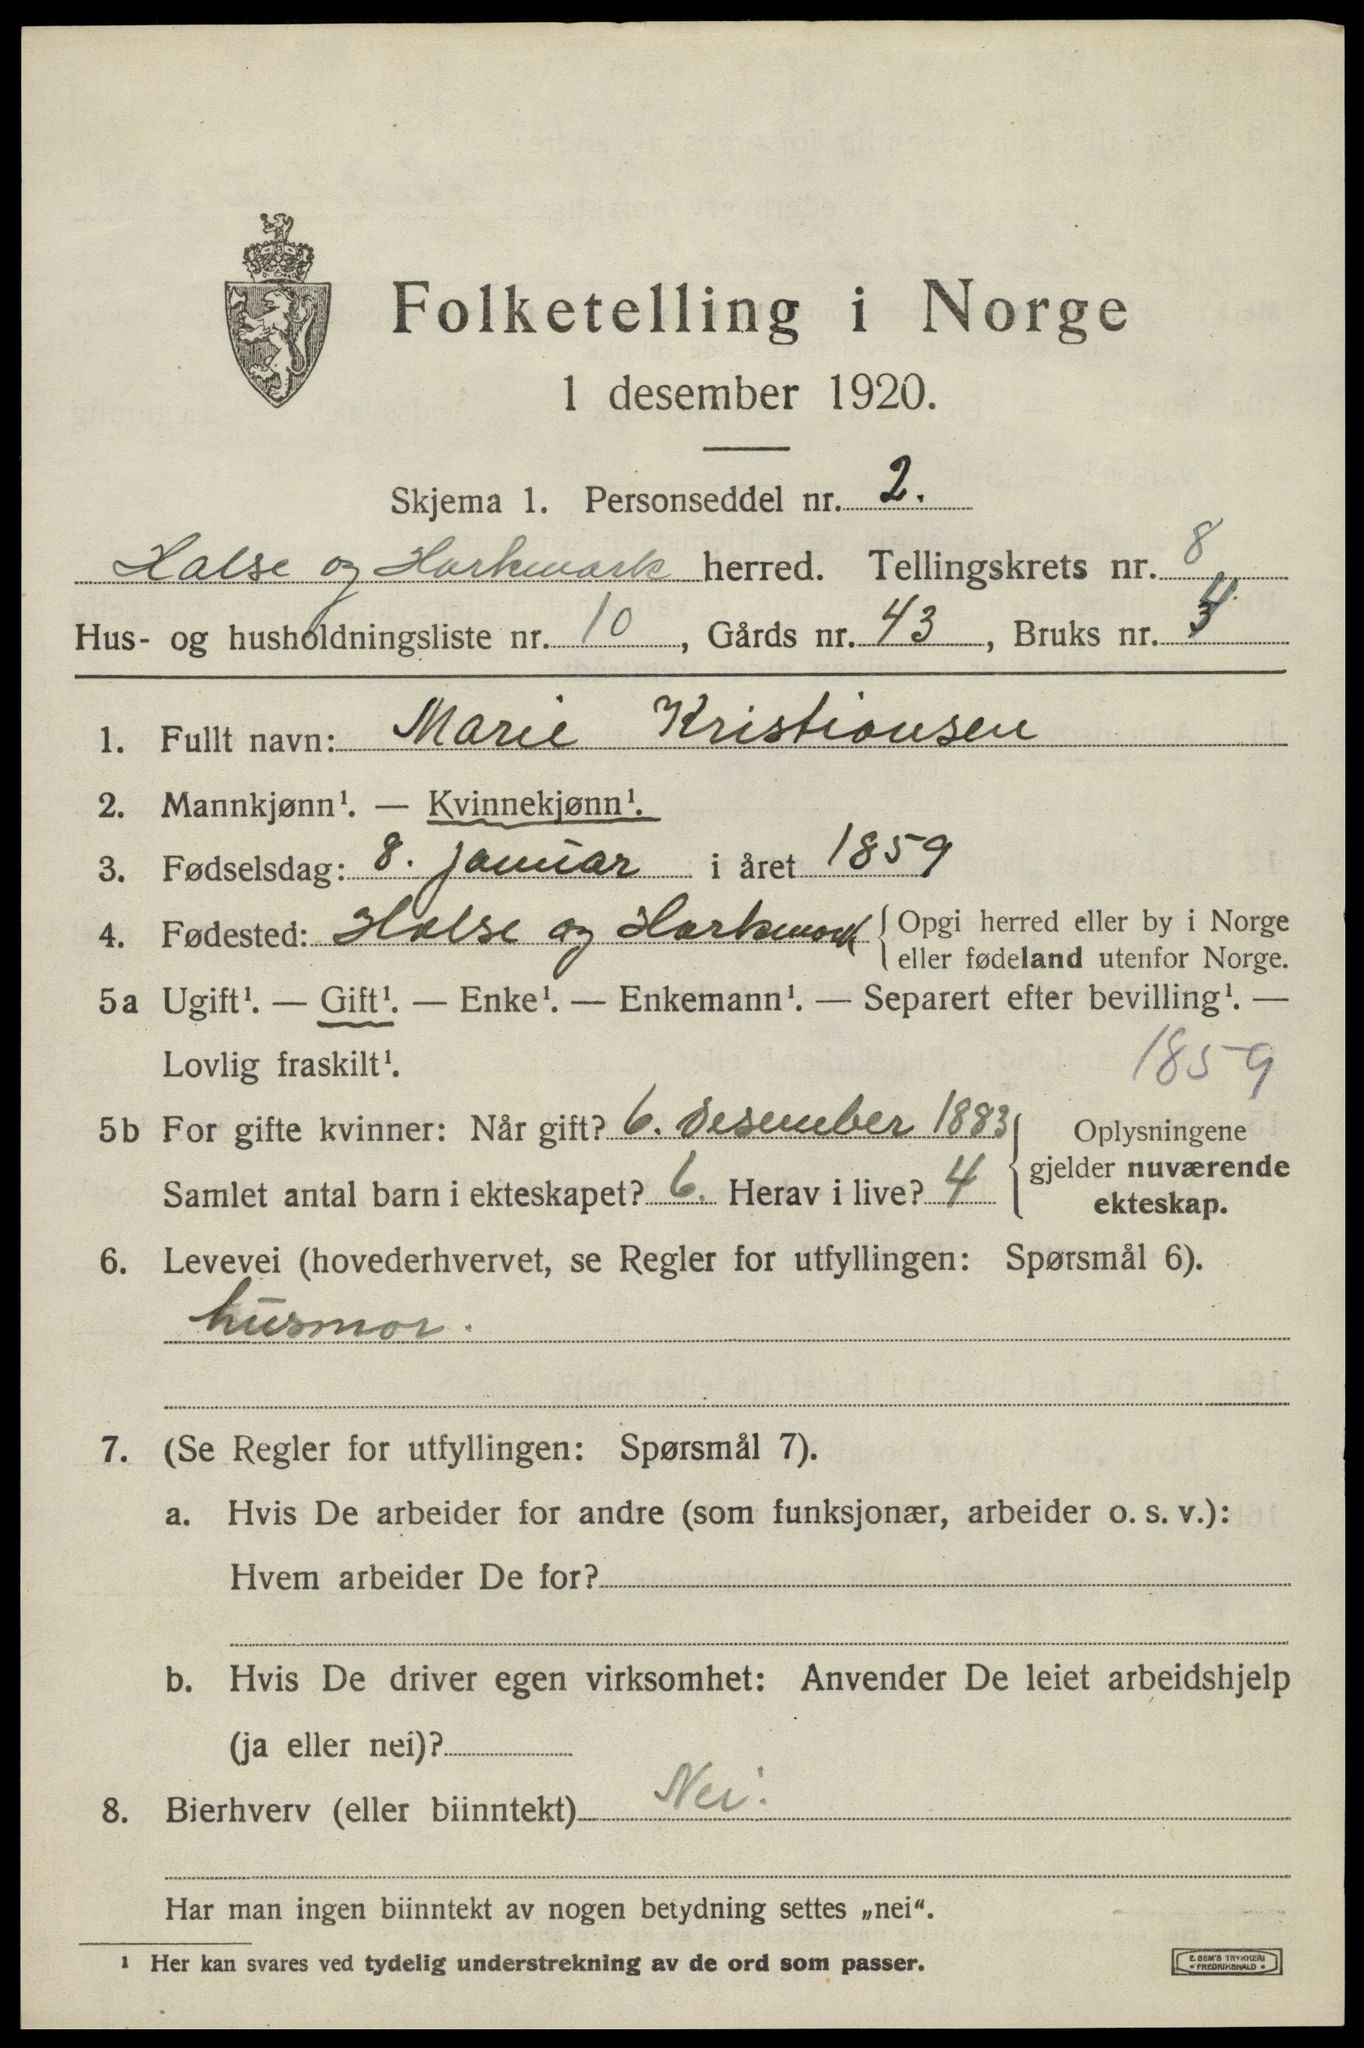 Folketelling i Norge
1 desember 1920.
Skjema 1. Personseddel nr. 2.
Halse og Harkmark herred. Tellingskrets nr. 8
Hus- og husholdningsliste nr. 10, Gårds nr. 43, Bruks nr. 4
1. Fullt navn: Marie Kristiansen
2. Mannkjønn¹. — Kvinnekjønn¹.
3. Fødselsdag: 8. januar i året 1859
4. Fødested: Halse og Harkmark { Opgi herred eller by i Norge
eller fødeland utenfor Norge.
5a Ugift¹. — Gift¹. — Enke¹. — Enkemann¹. — Separert efter bevilling¹. —
Lovlig fraskilt¹. 1859
5b For gifte kvinner: Når gift? 6. desember 1883 { Oplysningene
gjelder nuværende
Samlet antal barn i ekteskapet? 6. Herav i live? 4
ekteskap.
6. Levevei (hovederhvervet, se Regler for utfyllingen: Spørsmål 6).
husmor.
7. (Se Regler for utfyllingen: Spørsmål 7).
a. Hvis De arbeider for andre (som funksjonær, arbeider o. s. v.):
Hvem arbeider De for?
b. Hvis De driver egen virksomhet: Anvender De leiet arbeidshjelp
(ja eller nei)?
8. Bierhverv (eller biinntekt) Nei.
Har man ingen biinntekt av nogen betydning settes „nei“.
¹ Her kan svares ved tydelig understrekning av de ord som passer.
E. SEM'S TRYKKERI
• FREDRIKSHALD •